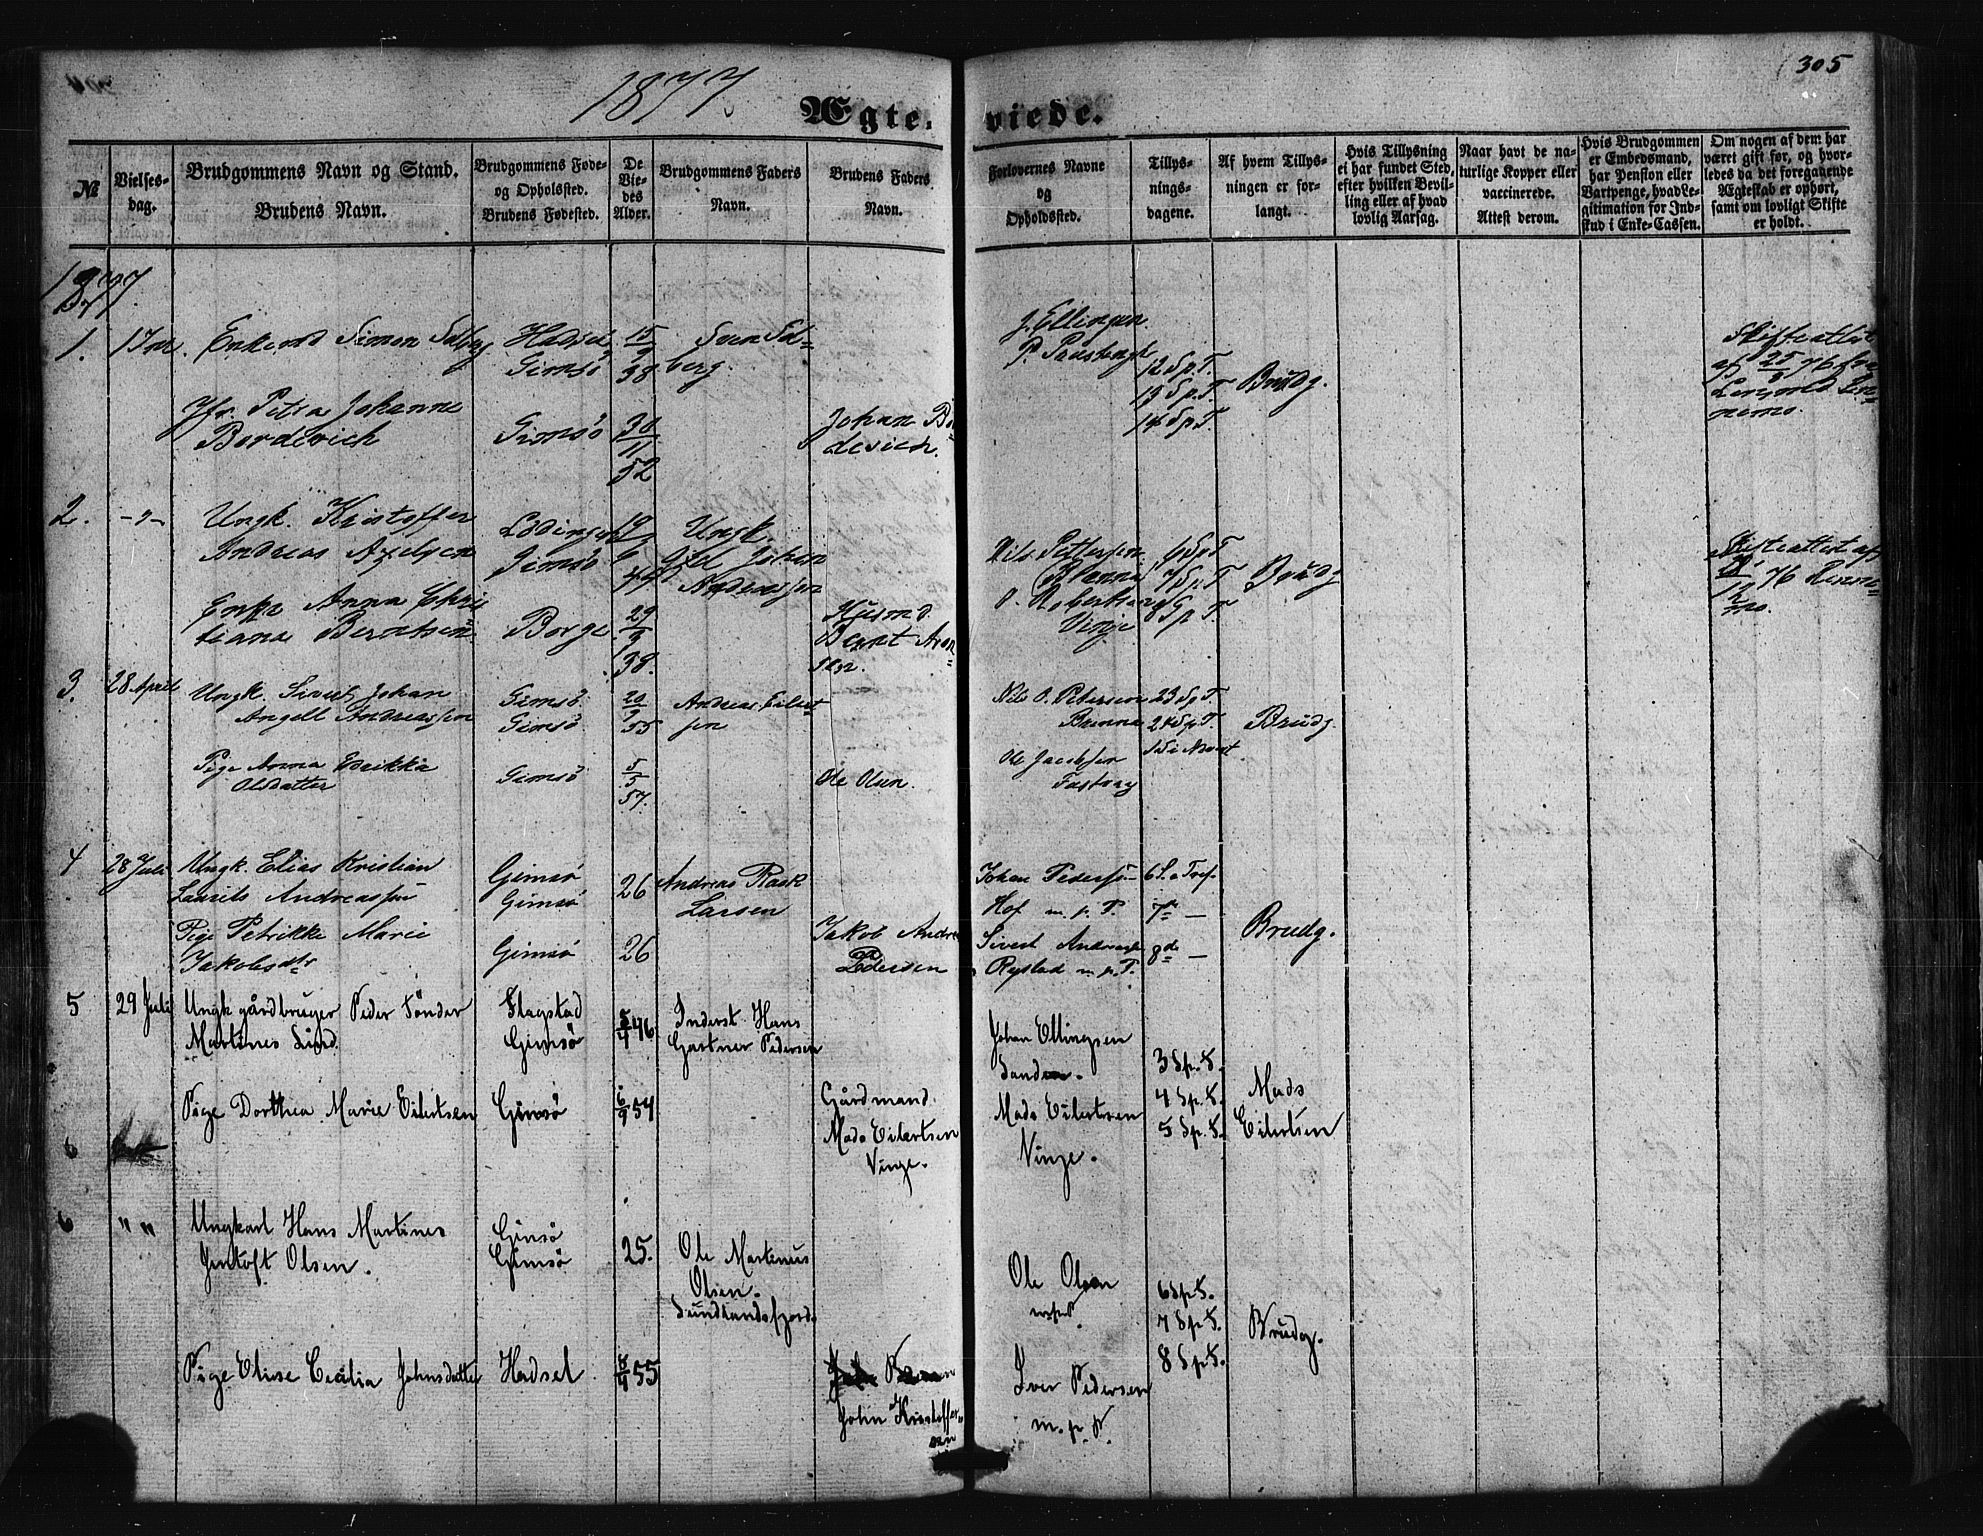 305
1877
Ægte- viede.
№
Vielses-
dag.
Brudgommens Navn og Stand.
Brudens Navn.
Brudgommens Føde-
og Opholdssted.
Brudens Fødested.
De
Vie-
des
Alder.
Brudgommens Faders
Navn.
Brudens Faders
Navn.
Forlovernes Navne
og
Opholdssted.
Tillys-
nings-
dagene.
Af hvem Tillys-
ningen er for-
langt.
Hvis Tillysning
ei har fundet Sted,
efter hvilken Bevil-
ling eller af hvad
lovlig Aarsag.
Naar havt de na-
turlige Kopper eller
vaccinerede.
Attest derom.
Hvis Brudgommen
er Embedsmand,
har Pension eller
Vartpenge, hvad Le-
gitimation for Ind-
skud i Enke-Cassen.
Om nogen af dem har
været gift før, og hvor-
ledes da det foregaaende
Ægteskab er ophørt,
samt om lovligt Skifte
er holdt.
1877
1.
Enkemd Simon Solberg
Hadsel
Gimsö
15
9
38
Sven Sol=
berg
J. Ellingsen
12 S p. T.
13 S p. T.
14 S p T.
Brudg.
Skifteattest
af 25 76 fra
Jfr. Petra Johanne
Bordevich
Gimsö
30
11
52
Johan Bor
devich.
2.
-"-
Ungk. Kristoffer
Andreas Axelsen
Lödingen
Gimsö
19
6
44
Ungk.
Axel Johan
Andreassen
Nils Pettersen
Brenna
O. Robertsen
Vinje
6 S p T
7 S p. T
8 S p T.
Brudg
Skifteattest af
76
Enke Anna Chris
tiana Berntsen
Borge
29
9
38.
Husmd.
Bernt Aron
sen.
3.
28 April
Ungk. Sivert Johan
Angell Andreassen
Gimsö
Gimsö
20
9
55
Andreas Eilert
sen
Nils O. Petersen
Brenna
23 S p T.
24 S p. T.
Brudg.
Pige Anna Erikka
Olsdatter
Gimsö
5
5
57.
Ole Olsen.
Ole Jacobsen
4
28 Juli
Ungk. Elias Kristian
Laurits Andreassen
Gimsö
Gimsö
26
Andreas Rask
Larsen
Johan Pedersen
Hof m. p. P.
6 S. a Tref.
7de —
8de —
Brudg.
Pige Petrikke Marie
Jakobsdtr
Gimsö
26
Jakob Andre
Pedersen
Sivert Andreas
Rystad m. p. P.
5
29 Juli
Ungk. gårdbruger Peder Tönder
Martines Lind.
Flagstad
Gimsö
5
4 46
Inderst Hans
Gartner Pedersen
Johan Ellingsen
Sanden.
3 Sp. T.
4 Sp. T.
5 Sp. T.
Mads
Eilertsen
Pige Dorthea Marie Eilertsen
Gimsö
6
9 54
Gårdmand.
Mads Eilertsen
Vinje.
Mads Eilertsen
Vinje.
6
6
" "
Ungkarl Hans Martines
Jentoft Olsen.
Gimsö
Gimsö
25.
Ole Martinus
Olsen.
Sundlandsfjord.
Ole Olsen
m.p.P.
6 Sp T.
7 Sp T.
8 Sp T.
Brudg.
Pige Elise Cecilia Johnsdatter
Hadsel
8
4 55
John Kristoffer
sen
Iver Pedersen
m. p. P.